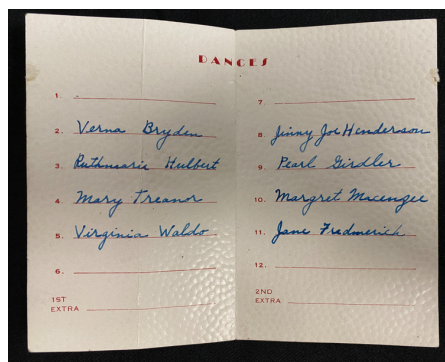 DANCES
1.
2. Verna Bryden
3. Ruthmarie Hulbert
4. Mary Treanor
5. Virginia Waldo
6.
1ST
EXTRA
7.
8. Jinny Joe Henderson
9. Pearl Girdler
10. Margret Macenzee
11. Jane Fredmerich
12.
2ND
EXTRA